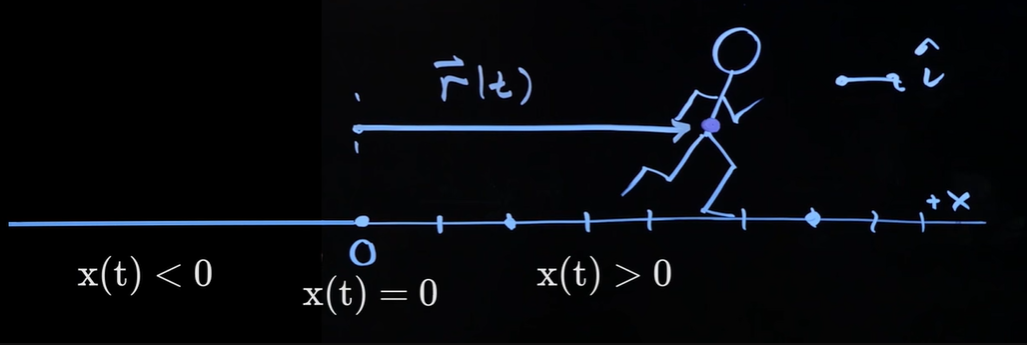 r⃗(t)
î
+x
0
x(t) < 0
x(t) = 0
x(t) > 0